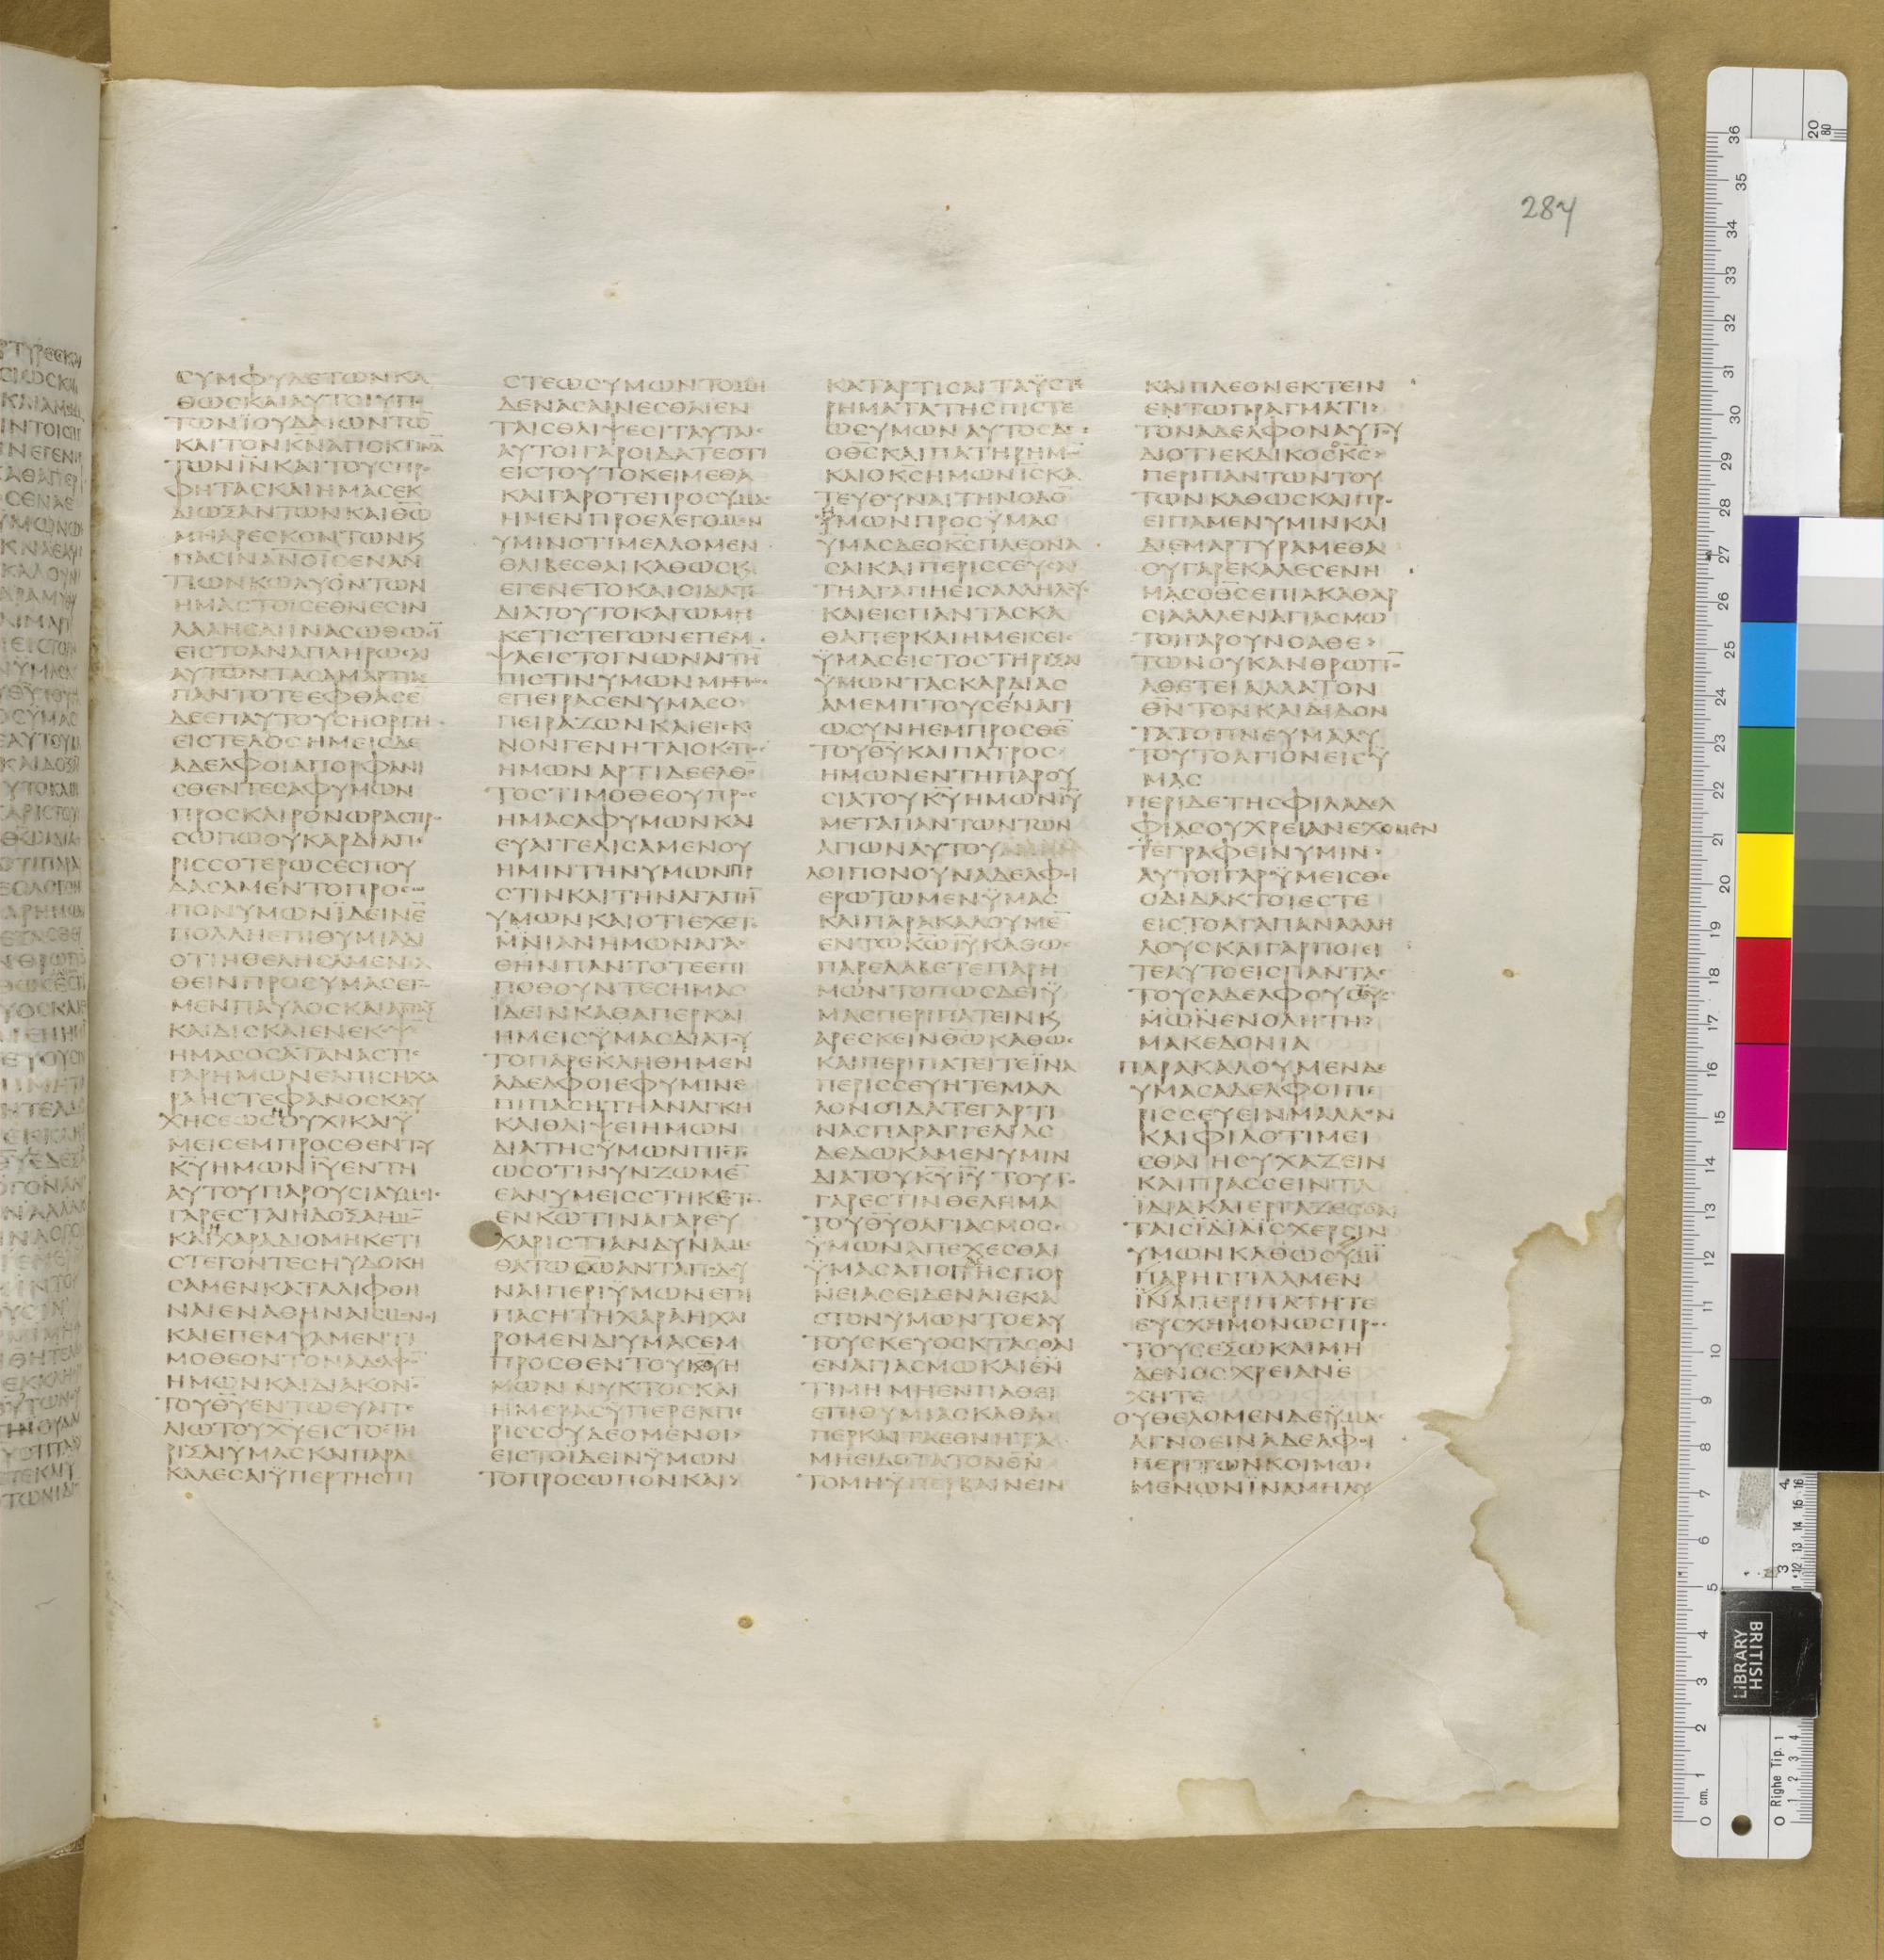 284
ϹΥΜΦΥΛΕΤΩΝΚΑ
ΘΩϹΚΑΙΑΥΤΟΙΥΠΟ
ΤΩΝΪΟΥΔΑΙΩΝΤΩ̅
ΚΑΙΤΟΝΚ̅Ν̅ΑΠΟΚΤΙΝΑ̅
ΤΩΝΙ̅Ν̅ΚΑΙΤΟΥϹΠΡΟ
ΦΗΤΑϹΚΑΙΗΜΑϹΕΚ
ΔΙΩΞΑΝΤΩΝΚΑΙΘ̅Ω̅
ΜΗΑΡΕϹΚΟΝΤΩΝϏ
ΠΑϹΙΝΑΝ̅Ο̅Ι̅Ϲ̅ΕΝΑΝ
ΤΙΩΝΚΩΛΥΟΝΤΩΝ
ΗΜΑϹΤΟΙϹΕΘΝΕϹΙΝ
ΛΑΛΗϹΑΙΙΝΑϹΩΘΩϹΙ̅
ΕΙϹΤΟΑΝΑΠΛΗΡΩϹΑΙ
ΑΥΤΩΝΤΑϹΑΜΑΡΤΙΑϹ
ΠΑΝΤΟΤΕΕΦΘΑϹΕ̅
ΔΕΕΠΑΥΤΟΥϹΗΟΡΓΗ
ΕΙϹΤΕΛΟϹΗΜΕΙϹΔΕ
ΑΔΕΛΦΟΙΑΠΟΡΦΑΝΙ
ϹΘΕΝΤΕϹΑΦΥΜΩΝ
ΠΡΟϹΚΑΙΡΟΝΩΡΑϹΠΡΟ
ϹΩΠΩΟΥΚΑΡΔΙΑΠΕ
ΡΙϹϹΟΤΕΡΩϹΕϹΠΟΥ
ΔΑϹΑΜΕΝΤΟΠΡΟϹΩ
ΠΟΝΥΜΩΝΪΔΕΙΝΕ̅
ΠΟΛΛΗΕΠΙΘΥΜΙΑΔΙ
ΟΤΙΗΘΕΛΗϹΑΜΕΝΕΛ
ΘΕΙΝΠΡΟϹΥΜΑϹΕΓΩ
ΜΕΝΠΑΥΛΟϹΚΑΙΑΠΑΞ
ΚΑΙΔΙϹΚΑΙΕΝΕΚΟΨΕ̅
ΗΜΑϹΟϹΑΤΑΝΑϹΤΙϹ
ΓΑΡΗΜΩΝΕΛΠΙϹΗΧΑ
ΡΑΗϹΤΕΦΑΝΟϹΚΑΥ
ΧΗϹΕΩϹΗΟΥΧΙΚΑΙΫ
ΜΕΙϹΕΜΠΡΟϹΘΕΝΤΟΥ
Κ̅Υ̅ΗΜΩΝΙ̅Υ̅ΕΝΤΗ
ΑΥΤΟΥΠΑΡΟΥϹΙΑΥΜΕΙϹ
ΓΑΡΕϹΤΑΙΗΔΟΞΑΗΜΩ̅
ΚΑΙΗΧΑΡΑΔΙΟΜΗΚΕΤΙ
ϹΤΕΓΟΝΤΕϹΗΥΔΟΚΗ
ϹΑΜΕΝΚΑΤΑΛΙΦΘΗ
ΝΑΙΕΝΑΘΗΝΑΙϹΜΟΝΟΙ
ΚΑΙΕΠΕΜΨΑΜΕΝΤΙ
ΜΟΘΕΟΝΤΟΝΑΔΕΛΦΟ̅
ΗΜΩΝΚΑΙΔΙΑΚΟΝΟ̅
ΤΟΥΘ̅Υ̅ΕΝΤΩΕΥΑΓΓΕ
ΛΙΩΤΟΥΧ̅Υ̅ΕΙϹΤΟϹΤΗ
ΡΙΞΑΙΥΜΑϹΚΑΙΠΑΡΑ
ΚΑΛΕϹΑΙΫΠΕΡΤΗϹΠΙ
ϹΤΕΩϹΥΜΩΝΤΟΜΗ
ΔΕΝΑϹΑΙΝΕϹΘΑΙΕΝ
ΤΑΙϹΘΛΙΨΕϹΙΤΑΥΤΑΙϹ
ΑΥΤΟΙΓΑΡΟΙΔΑΤΕΟΤΙ
ΕΙϹΤΟΥΤΟΚΕΙΜΕΘΑ
ΚΑΙΓΑΡΟΤΕΠΡΟϹΥΜΑϹ
ΗΜΕΝΠΡΟΕΛΕΓΟΜΕΝ
ΥΜΙΝΟΤΙΜΕΛΛΟΜΕΝ
ΘΛΙΒΕϹΘΑΙΚΑΘΩϹΚΑΙ
ΕΓΕΝΕΤΟΚΑΙΟΙΔΑΤΕ
ΔΙΑΤΟΥΤΟΚΑΓΩΜΗ
ΚΕΤΙϹΤΕΓΩΝΕΠΕΜ
ΨΑΕΙϹΤΟΓΝΩΝΑΙΤΗ̅
ΠΙϹΤΙΝΥΜΩΝΜΗΠΩϹ
ΕΠΕΙΡΑϹΕΝΥΜΑϹΟ
ΠΕΙΡΑΖΩΝΚΑΙΕΙϹΚΕ
ΝΟΝΓΕΝΗΤΑΙΟΚΟΠΟϹ
ΗΜΩΝΑΡΤΙΔΕΕΛΘΟ̅
ΤΟϹΤΙΜΟΘΕΟΥΠΡΟϹ
ΗΜΑϹΑΦΥΜΩΝΚΑΙ
ΕΥΑΓΓΕΛΙϹΑΜΕΝΟΥ
ΗΜΙΝΤΗΝΥΜΩΝΠΙ
ϹΤΙΝΚΑΙΤΗΝΑΓΑΠΗ̅
ΥΜΩΝΚΑΙΟΤΙΕΧΕΤΕ
ΜΝΙΑΝΗΜΩΝΑΓΑ
ΘΗΝΠΑΝΤΟΤΕΕΠΙ
ΠΟΘΟΥΝΤΕϹΗΜΑϹ
ΪΔΕΙΝΚΑΘΑΠΕΡΚΑΙ
ΗΜΕΙϹΫΜΑϹΔΙΑΤΟΥ
ΤΟΠΑΡΕΚΛΗΘΗΜΕΝ
ΑΔΕΛΦΟΙΕΦΥΜΙΝΕ
ΠΙΠΑϹΗΤΗΑΝΑΓΚΗ
ΚΑΙΘΛΙΨΕΙΗΜΩΝ
ΔΙΑΤΗϹΥΜΩΝΠΙϹΤΕ
ΩϹΟΤΙΝΥΝΖΩΜΕ̅
ΕΑΝΥΜΕΙϹϹΤΗΚΕΤΕ
ΕΝΚ̅Ω̅ΤΙΝΑΓΑΡΕΥ
ΧΑΡΙϹΤΙΑΝΔΥΝΑΜΕ
ΘΑΤΩΘ̅Ω̅ΑΝΤΑΠΟΔΟΥ
ΝΑΙΠΕΡΙΥΜΩΝΕΠΙ
ΠΑϹΗΤΗΧΑΡΑΗΧΑΙ
ΡΟΜΕΝΔΙΥΜΑϹΕΜ
ΠΡΟϹΘΕΝΤΟΥΚ̅Υ̅Η
ΜΩΝΝΥΚΤΟϹΚΑΙ
ΗΜΕΡΑϹΥΠΕΡΕΚΠΕ
ΡΙϹϹΟΥΔΕΟΜΕΝΟΙ>
ΕΙϹΤΟΪΔΕΙΝΫΜΩΝ
ΤΟΠΡΟϹΩΠΟΝΚΑΙ>
ΚΑΤΑΡΤΙϹΑΙΤΑΫϹΤΕ
ΡΗΜΑΤΑΤΗϹΠΙϹΤΕ
ΩϹΥΜΩΝΑΥΤΟϹΔΕ
ΟΘ̅Ϲ̅ΚΑΙΠΑΤΗΡΗΜΩ̅
ΚΑΙΟΚ̅Ϲ̅ΗΜΩΝΙ̅Ϲ̅ΚΑ
ΤΕΥΘΥΝΑΙΤΗΝΟΔΟ̅
ΗΜΩΝΠΡΟϹΫΜΑϹ
ΥΜΑϹΔΕΟΚ̅Ϲ̅ΠΛΕΟΝΑ
ϹΑΙΚΑΙΠΕΡΙϹϹΕΥϹΑΙ
ΤΗΑΓΑΠΗΕΙϹΑΛΛΗΛΟΥϹ
ΚΑΙΕΙϹΠΑΝΤΑϹΚΑ
ΘΑΠΕΡΚΑΙΗΜΕΙϹΕΙϹ
ΫΜΑϹΕΙϹΤΟϹΤΗΡΙΞΑΙ
ΫΜΩΝΤΑϹΚΑΡΔΙΑϹ
ΑΜΕΜΠΤΟΥϹΕΝΑΓΙ
ΩϹΥΝΗΕΜΠΡΟϹΘΕ̅
ΤΟΥΘ̅Υ̅ΚΑΙΠΑΤΡΟϹ
ΗΜΩΝΕΝΤΗΠΑΡΟΥ
ϹΙΑΤΟΥΚ̅Υ̅ΗΜΩΝΙ̅Υ̅
ΜΕΤΑΠΑΝΤΩΝΤΩΝ
ΑΓΙΩΝΑΥΤΟΥΑΜΗΝ
ΛΟΙΠΟΝΟΥΝΑΔΕΛΦΟΙ
ΕΡΩΤΩΜΕΝΫΜΑϹ
ΚΑΙΠΑΡΑΚΑΛΟΥΜΕ̅
ΕΝΤΩΚ̅Ω̅Ι̅Υ̅ΚΑΘΩϹ
ΠΑΡΕΛΑΒΕΤΕΠΑΡΗ
ΜΩΝΤΟΠΩϹΔΕΙΫ
ΜΑϹΠΕΡΙΠΑΤΕΙΝϏ
ΑΡΕϹΚΕΙΝΘ̅Ω̅ΚΑΘΩϹ
ΚΑΙΠΕΡΙΠΑΤΕΙΤΕΪΝΑ
ΠΕΡΙϹϹΕΥΗΤΕΜΑΛ
ΛΟΝΟΙΔΑΤΕΓΑΡΤΙ
ΝΑϹΠΑΡΑΓΓΕΛΙΑϹ
ΔΕΔΩΚΑΜΕΝΥΜΙΝ
ΔΙΑΤΟΥΚ̅Υ̅Ι̅Υ̅ΤΟΥΤΟ
ΓΑΡΕϹΤΙΝΘΕΛΗΜΑ
ΤΟΥΘ̅Υ̅ΟΑΓΙΑϹΜΟϹ
ΫΜΩΝΑΠΕΧΕϹΘΑΙ
ΫΜΑϹΑΠΟΠΑϹΗϹΠΟΡ
ΝΕΙΑϹΕΙΔΕΝΑΙΕΚΑ
ϹΤΟΝΥΜΩΝΤΟΕΑΥ
ΤΟΥϹΚΕΥΟϹΚΤΑϹΘΑΙ
ΕΝΑΓΙΑϹΜΩΚΑΙΕΝ
ΤΙΜΗΜΗΕΝΠΑΘΕΙ
ΕΠΙΘΥΜΙΑϹΚΑΘΑ
ΠΕΡΚΑΙΤΑΕΘΝΗΤΑ
ΜΗΕΙΔΟΤΑΤΟΝΘ̅Ν̅
ΤΟΜΗΫΠΕΡΒΑΙΝΕΙΝ
ΚΑΙΠΛΕΟΝΕΚΤΕΙΝ
ΕΝΤΩΠΡΑΓΜΑΤΙ>
ΤΟΝΑΔΕΛΦΟΝΑΥΤΟΥ
ΔΙΟΤΙΕΚΔΙΚΟϹΟΚ̅Ϲ̅>
ΠΕΡΙΠΑΝΤΩΝΤΟΥ
ΤΩΝΚΑΘΩϹΚΑΙΠΡΟ
ΕΙΠΑΜΕΝΥΜΙΝΚΑΙ
ΔΙΕΜΑΡΤΥΡΑΜΕΘΑ
ΟΥΓΑΡΕΚΑΛΕϹΕΝΗ
ΜΑϹΟΘ̅Ϲ̅ΕΠΙΑΚΑΘΑΡ
ϹΙΑΑΛΛΕΝΑΓΙΑϹΜΩ
ΤΟΙΓΑΡΟΥΝΟΑΘΕ>
ΤΩΝΟΥΚΑΝΘΡΩΠΟ̅
ΑΘΕΤΕΙΑΛΛΑΤΟΝ
Θ̅Ν̅ΤΟΝΚΑΙΔΙΔΟΝ
ΤΑΤΟΠΝΕΥΜΑΑΥ
ΤΟΥΤΟΑΓΙΟΝΕΙϹΫ
ΜΑϹ
ΠΕΡΙΔΕΤΗϹΦΙΛΑΔΕΛ
ΦΙΑϹΟΥΧΡΕΙΑΝΕΧΟΜΕΝ
ΓΕΓΡΑΦΕΙΝΥΜΙΝ
ΑΥΤΟΙΓΑΡΫΜΕΙϹΘΕ
ΟΔΙΔΑΚΤΟΙΕϹΤΕ
ΕΙϹΤΟΑΓΑΠΑΝΑΛΛΗ
ΛΟΥϹΚΑΙΓΑΡΠΟΙΕΙ
ΤΕΑΥΤΟΕΙϹΠΑΝΤΑϹ
ΤΟΥϹΑΔΕΛΦΟΥϹΫ
ΜΩΝΕΝΟΛΗΤΗ>
ΜΑΚΕΔΟΝΙΑ
ΠΑΡΑΚΑΛΟΥΜΕΝΔΕ
ΥΜΑϹΑΔΕΛΦΟΙΠΕ
ΡΙϹϹΕΥΕΙΝΜΑΛΛΟΝ
ΚΑΙΦΙΛΟΤΙΜΕΙ
ϹΘΑΙΗϹΥΧΑΖΕΙΝ
ΚΑΙΠΡΑϹϹΕΙΝΤΑ
ΪΔΙΑΚΑΙΕΡΓΑΖΕϹΘΑΙ
ΤΑΙϹΪΔΙΑΙϹΧΕΡϹΙΝ
ΥΜΩΝΚΑΘΩϹΥΜΙ̅
ΠΑΡΗΓΓΙΛΑΜΕΝ
ΪΝΑΠΕΡΙΠΑΤΗΤΕ
ΕΥϹΧΗΜΟΝΩϹΠΡΟϹ
ΤΟΥϹΕΞΩΚΑΙΜΗ
ΔΕΝΟϹΧΡΕΙΑΝΕ
ΧΗΤΕ
ΟΥΘΕΛΟΜΕΝΔΕΫΜΑϹ
ΑΓΝΟΕΙΝΑΔΕΛΦΟΙ
ΠΕΡΙΤΩΝΚΟΙΜΩ
ΜΕΝΩΝΪΝΑΜΗΛΥ